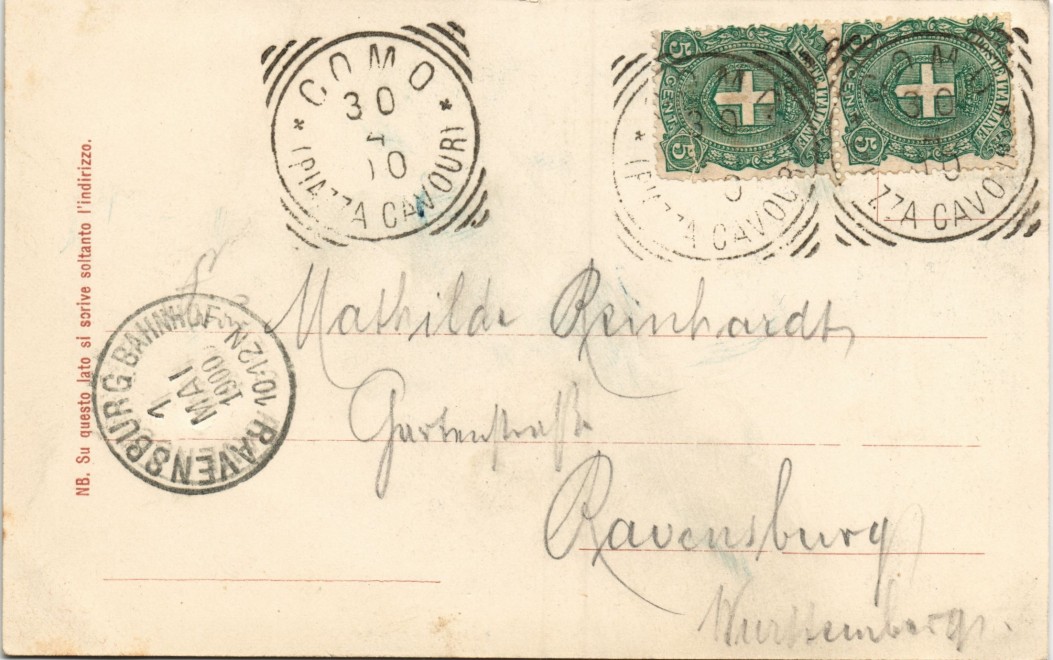 COMO
30
4
00
* (PIAZZA CAVOUR) *
5 CENT 5
POSTE ITALIANE
COMO
30
(PIAZZA CAVOUR)
5 CENT 5
POSTE ITALIANE
COMO
30
ZZA CAVO
NB. Su questo lato si scrive soltanto l'indirizzo.
Fr
Mathilde Reinhardt
Gartenstraße
Ravensburg
Württemberg.
RAVENSBURG BAHNHOF
1
MAI
1900
10-12 N